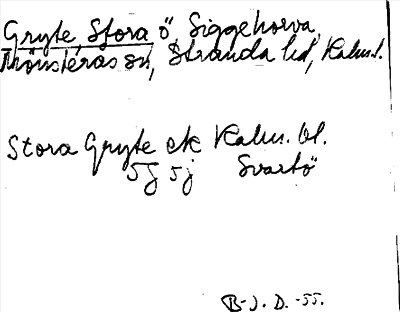 Gryte, Stora ö, Siggehorva,
Mönsterås sn, Stranda hd, Kalm. l.
Stora Gryte ek Kalm. bl.
5g 5j Svartö
B-J. D. -55.